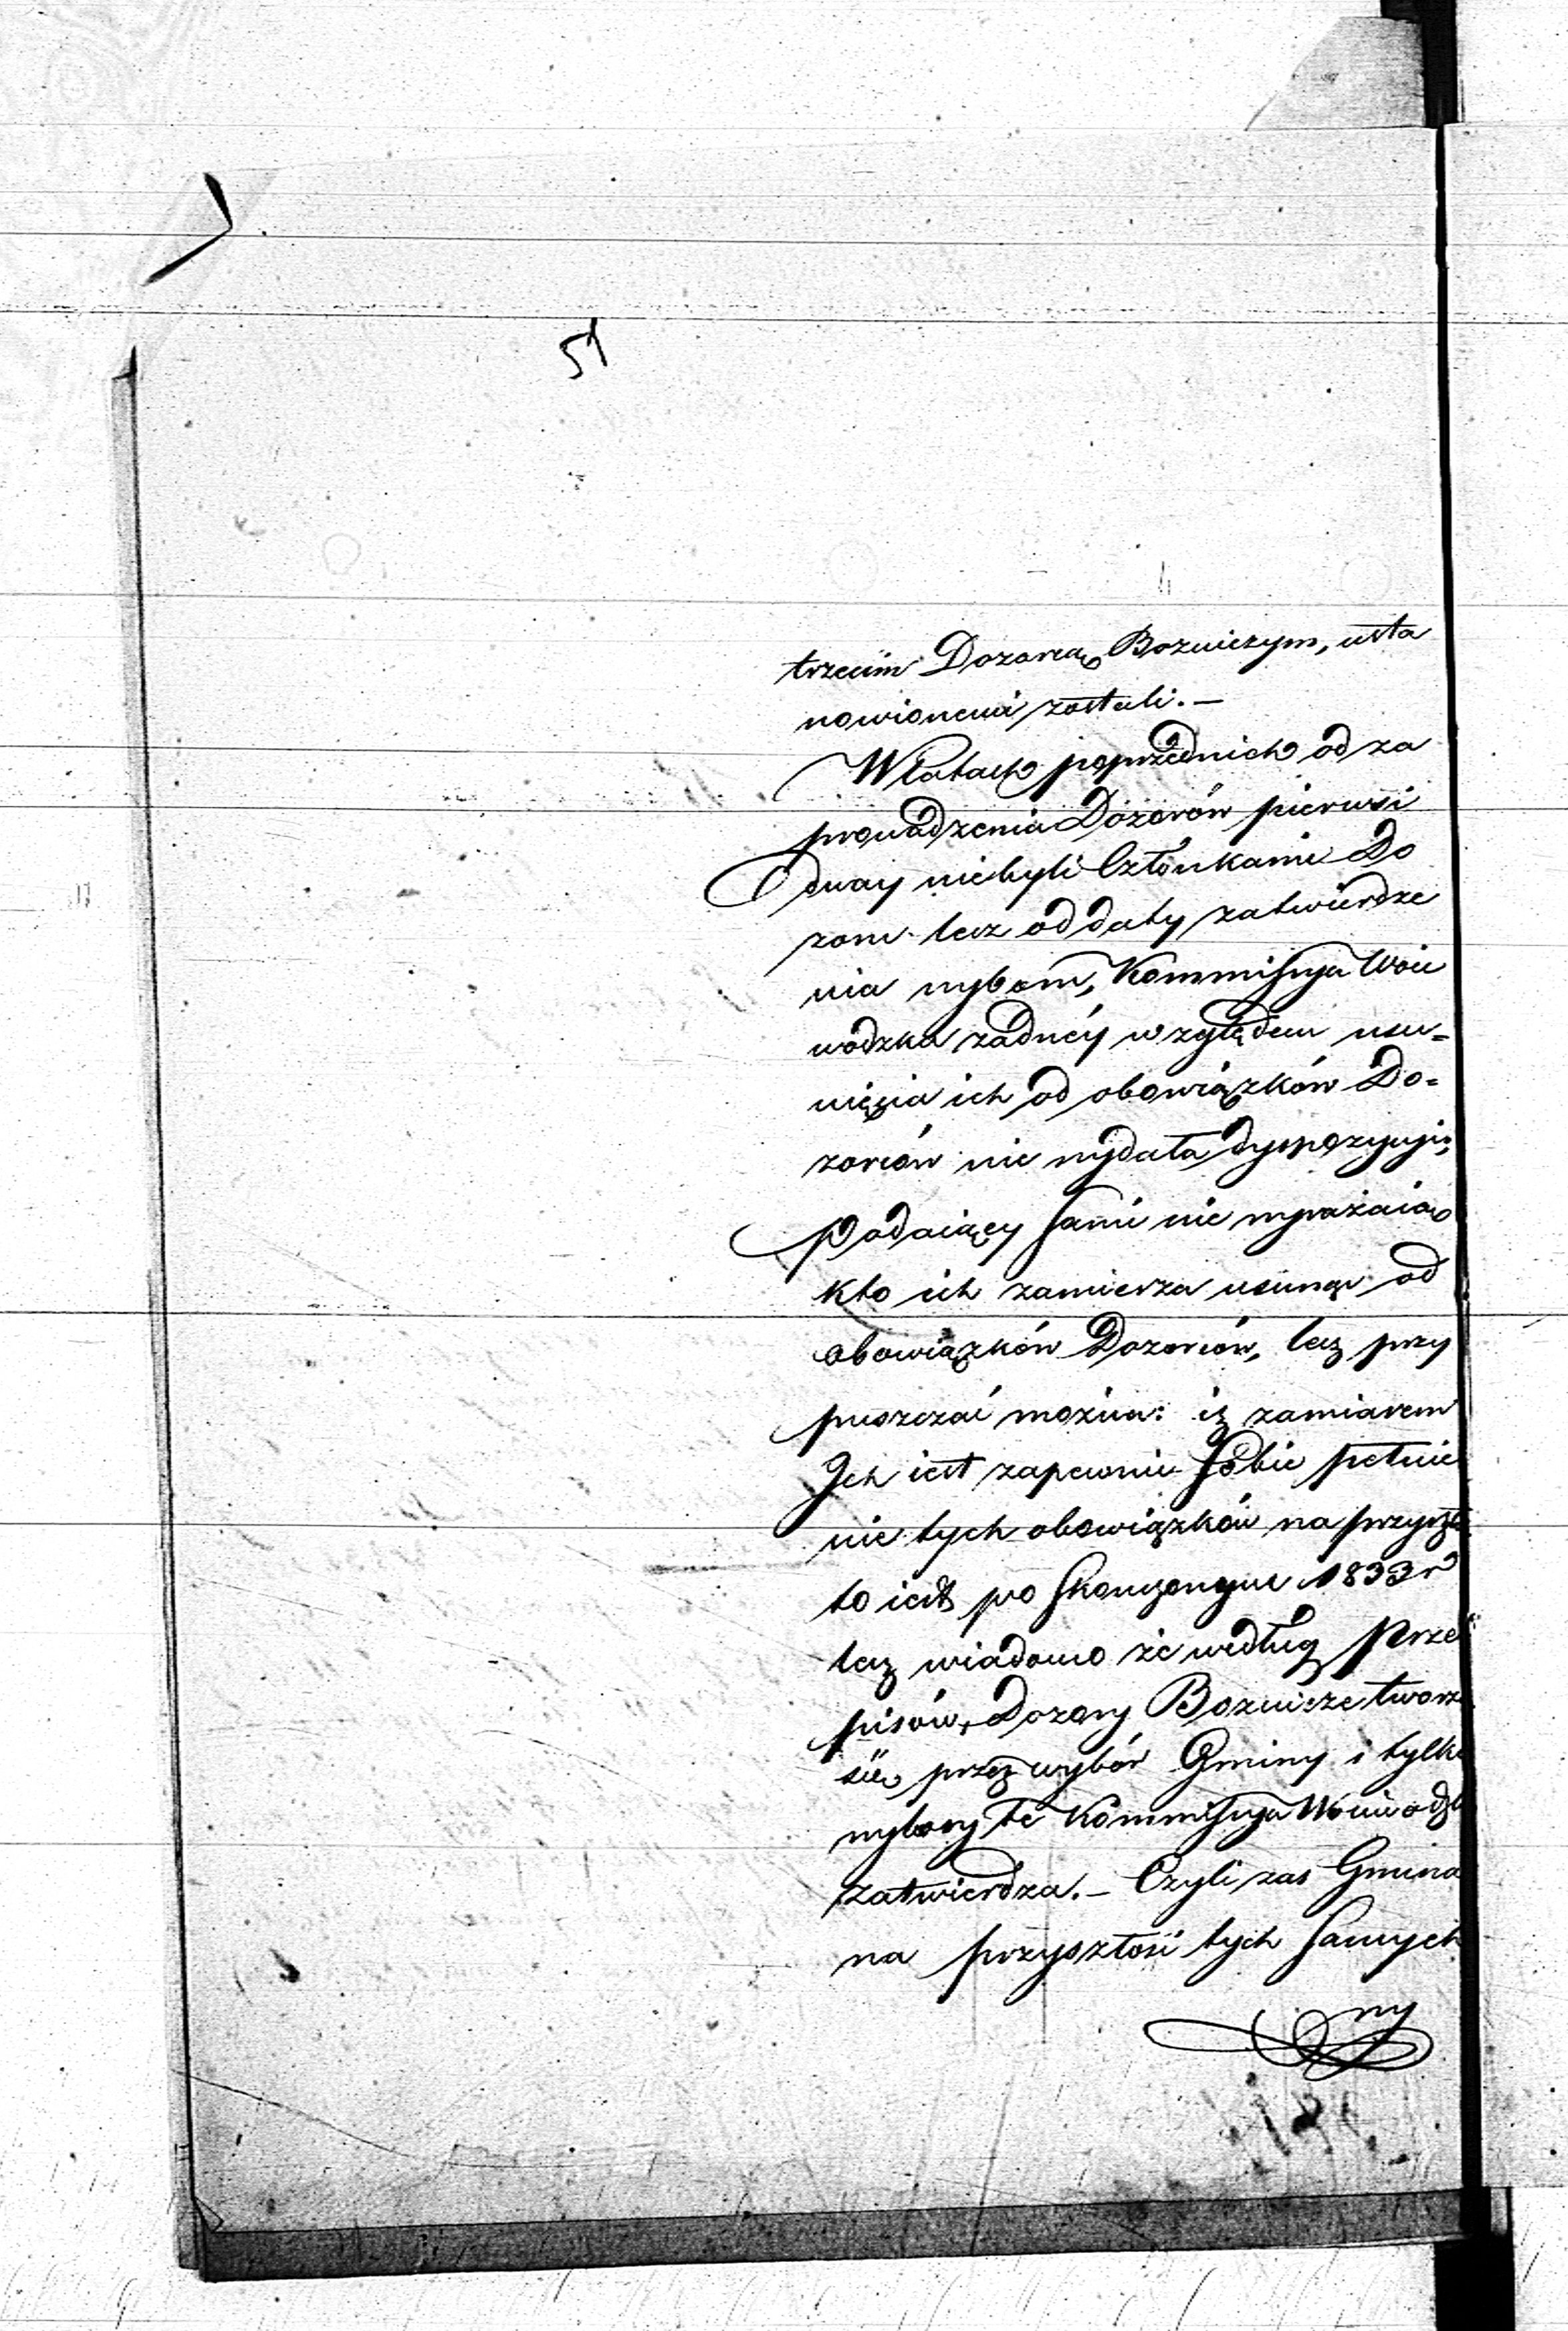 51
trzecim Dozorcą Bozniczym, usta
nowionemi zostali. —
W latach poprzednich od za
prowadzenia Dozorów pierwsi
dway niebyli Członkami Do
zoru lecz od daty zatwierdze
nia wyboru, Kommissya Woie
wodzka żadnéy względem usu=
nięcia ich od obowiązków Do=
zorców nie wydała dyspozycyi;
Podaiący sami nie wyrażaią
kto ich zamierza usunąć od
obowiązków Dozorców, lecz przy
puszczać można: iż zamiarem
Ich iest zapewnić sobie pełnie
nie tych obowiązków na przyszł
to iest po skonczonym 1833 r
lecz wiadomo że według Prze
pisów, Dozory Boznicze tworzą
się przez wybór Gminy i tylko
wybory te Kommissya Woiewodzk
zatwierdza. — Czyli zas Gmina
na przyszłość tych samych
wy